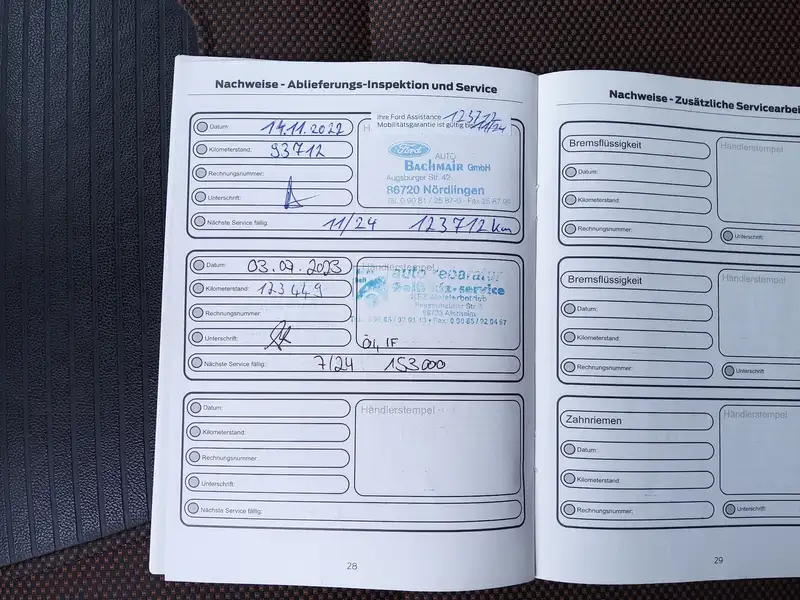 Nachweise - Ablieferungs-Inspektion und Service
Datum: 14.11.2022
Kilometerstand: 93712
Rechnungsnummer:
Unterschrift:
Nächste Service fällig: 11/24 123712 km
Ihre Ford Assistance 123712
Mobilitätsgarantie ist gültig bis 11/24
Ford
AUTO
BACHMAIR GmbH
Augsburger Str. 42
86720 Nördlingen
Datum: 03.07.2023
Kilometerstand: 123449
Rechnungsnummer:
Unterschrift:
Nächste Service fällig: 7/24 153000
Händlerstempel
auto reparatur
service
Öl, IF
Datum:
Kilometerstand:
Rechnungsnummer:
Unterschrift:
Nächste Service fällig:
Händlerstempel
28
Nachweise - Zusätzliche Servicearbei
Bremsflüssigkeit
Datum:
Kilometerstand:
Rechnungsnummer:
Händlerstempel
Unterschrift:
Bremsflüssigkeit
Datum:
Kilometerstand:
Rechnungsnummer:
Händlerstempel
Unterschrift:
Zahnriemen
Datum:
Kilometerstand:
Rechnungsnummer:
Händlerstempel
Unterschrift:
29